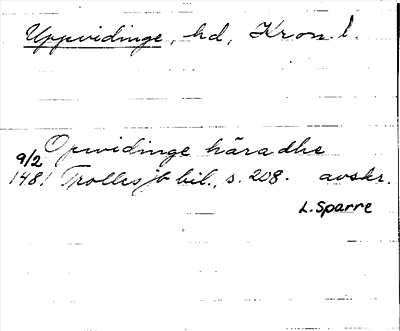 Uppvidinge, hd, Kron. l.
Opwidinge häradhe
9/2
1481 Trolles jb bil., s. 208. avskr.
L. Sparre